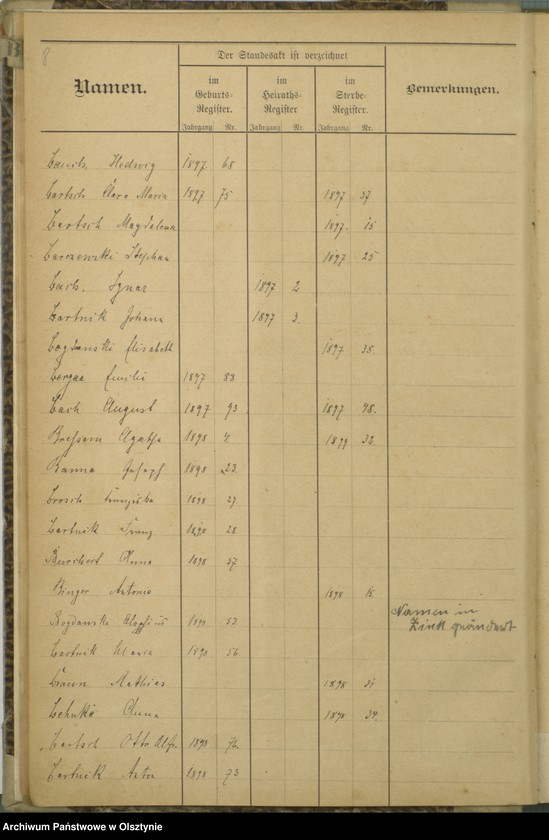 8
Namen.
Der Standesakt ist verzeichnet
Bemerkungen.
im Geburts-Register.
im Heiraths-Register
im Sterbe-Register.
Jahrgang Nr. Jahrgang Nr. Jahrgang Nr.
Hedwig 1897 68
Bartsch Clara Maria 1897 75 1897 57
Bartsch Magdalena 1897. 15
Stephan 1897 25
Bach, Ignaz 1897 2
Bartnik Johann 1897 3.
Bogdanski Elisabeth 1897 38.
Emilie 1897 88
Bach August 1897 93 1897 48.
Agathe 1898 4. 1899 32.
Joseph 1898 23.
Brosch Franziska 1898 27.
Bartnik Franz 1898 28
Anna 1898 37
Binger Antonie 1898 15.
Bogdanski 1898 53 Namen in
Zink geändert
Bartnik Maria 1898 56
Braun Mathias 1898 31
Anna 1898 34.
Bartsch Otto 1898 72
Bartnik 1898 73
Archiwum Państwowe w Olsztynie